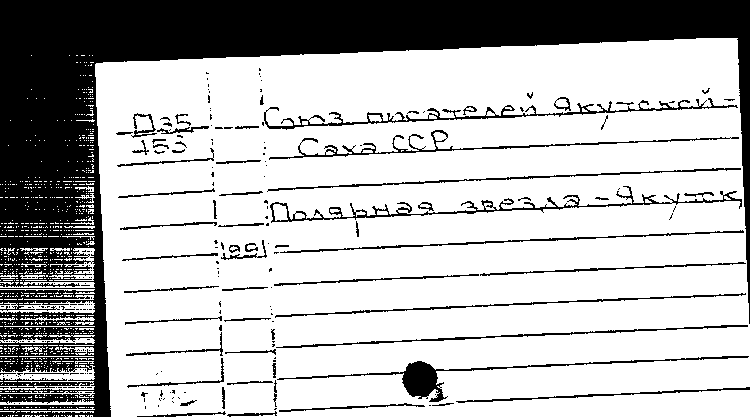 П35 Союз писателей Якутской-
453 Саха ССР
Полярная звезда - Якутск,
1991 -